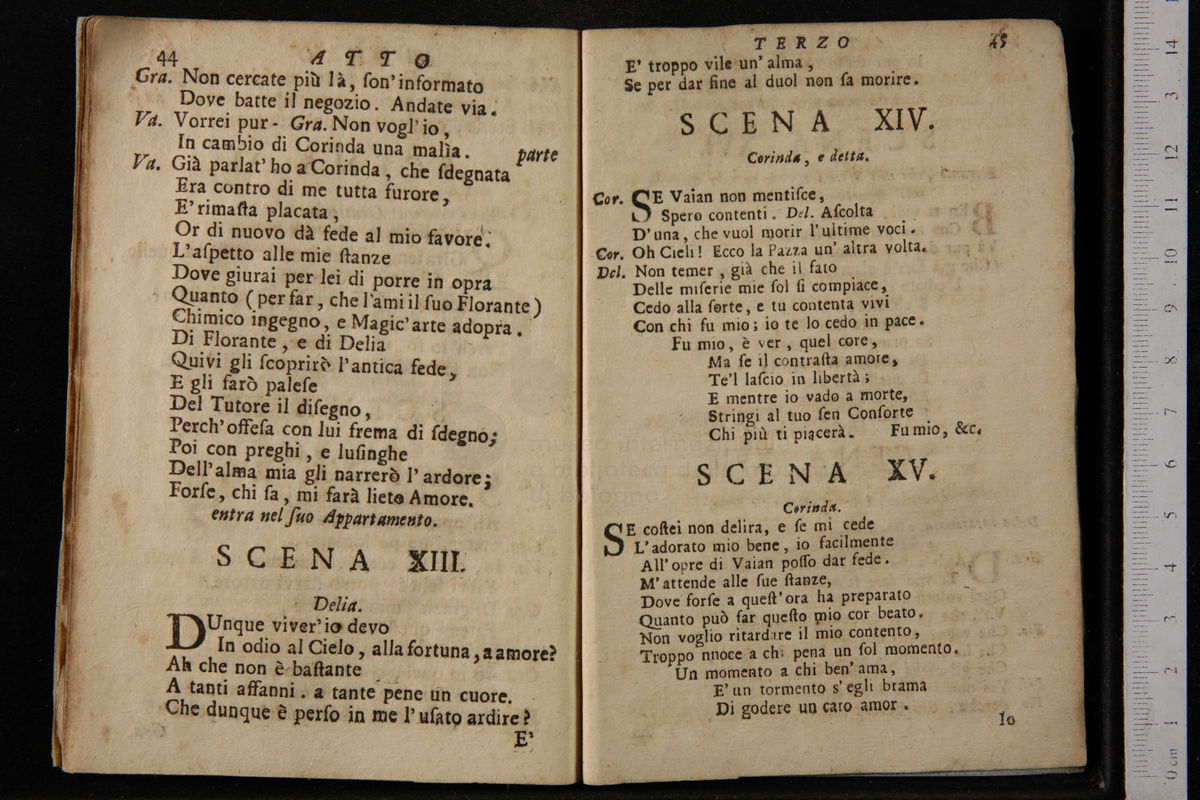 44 ATTO
Gra. Non cercate più là, ſon' informato
Dove batte il negozio. Andate via.
Va. Vorrei pur - Gra. Non vogl' io,
In cambio di Corinda una malìa. parte
Va. Già parlat' ho a Corinda, che ſdegnata
Era contro di me tutta furore,
E' rimaſta placata,
Or di nuovo dà fede al mio favore.
L'aſpetto alle mie ſtanze
Dove giurai per lei di porre in opra
Quanto (per far, che l'ami il ſuo Florante)
Chimico ingegno, e Magic' arte adopra.
Di Florante, e di Delia
Quivi gli ſcoprirò l'antica fede,
E gli farò paleſe
Del Tutore il diſegno,
Perch' offeſa con lui frema di ſdegno;
Poi con preghi, e luſinghe
Dell'alma mia gli narrerò l' ardore;
Forſe, chi ſa, mi farà lieto Amore.
entra nel ſuo Appartamento.
SCENA XIII.
Delia.
DUnque viver' io devo
In odio al Cielo, alla fortuna, a amore?
Ah che non è baſtante
A tanti affanni. a tante pene un cuore.
Che dunque è perſo in me l' uſato ardire?
E'
TERZO 45
E' troppo vile un' alma,
Se per dar fine al duol non ſa morire.
SCENA XIV.
Corinda, e detta.
Cor. SE Vaian non mentiſce,
Spero contenti. Del. Aſcolta
D'una, che vuol morir l'ultime voci.
Cor. Oh Cieli! Ecco la Pazza un' altra volta.
Del. Non temer, già che il fato
Delle miſerie mie ſol ſi compiace,
Cedo alla ſorte, e tu contenta vivi
Con chi fu mio; io te lo cedo in pace.
Fu mio, è ver, quel core,
Ma ſe il contraſta amore,
Te'l laſcio in libertà;
E mentre io vado a morte,
Stringi al tuo ſen Conſorte
Chi più ti piacerà. Fu mio, &c.
SCENA XV.
Corinda.
SE coſtei non delira, e ſe mi cede
L'adorato mio bene, io facilmente
All' opre di Vaian poſſo dar fede.
M'attende alle ſue ſtanze,
Dove forſe a queſt' ora ha preparato
Quanto può far queſto mio cor beato.
Non voglio ritardare il mio contento,
Troppo nuoce a chi pena un ſol momento.
Un momento a chi ben' ama,
E' un tormento s' egli brama
Di godere un caro amor.
Io